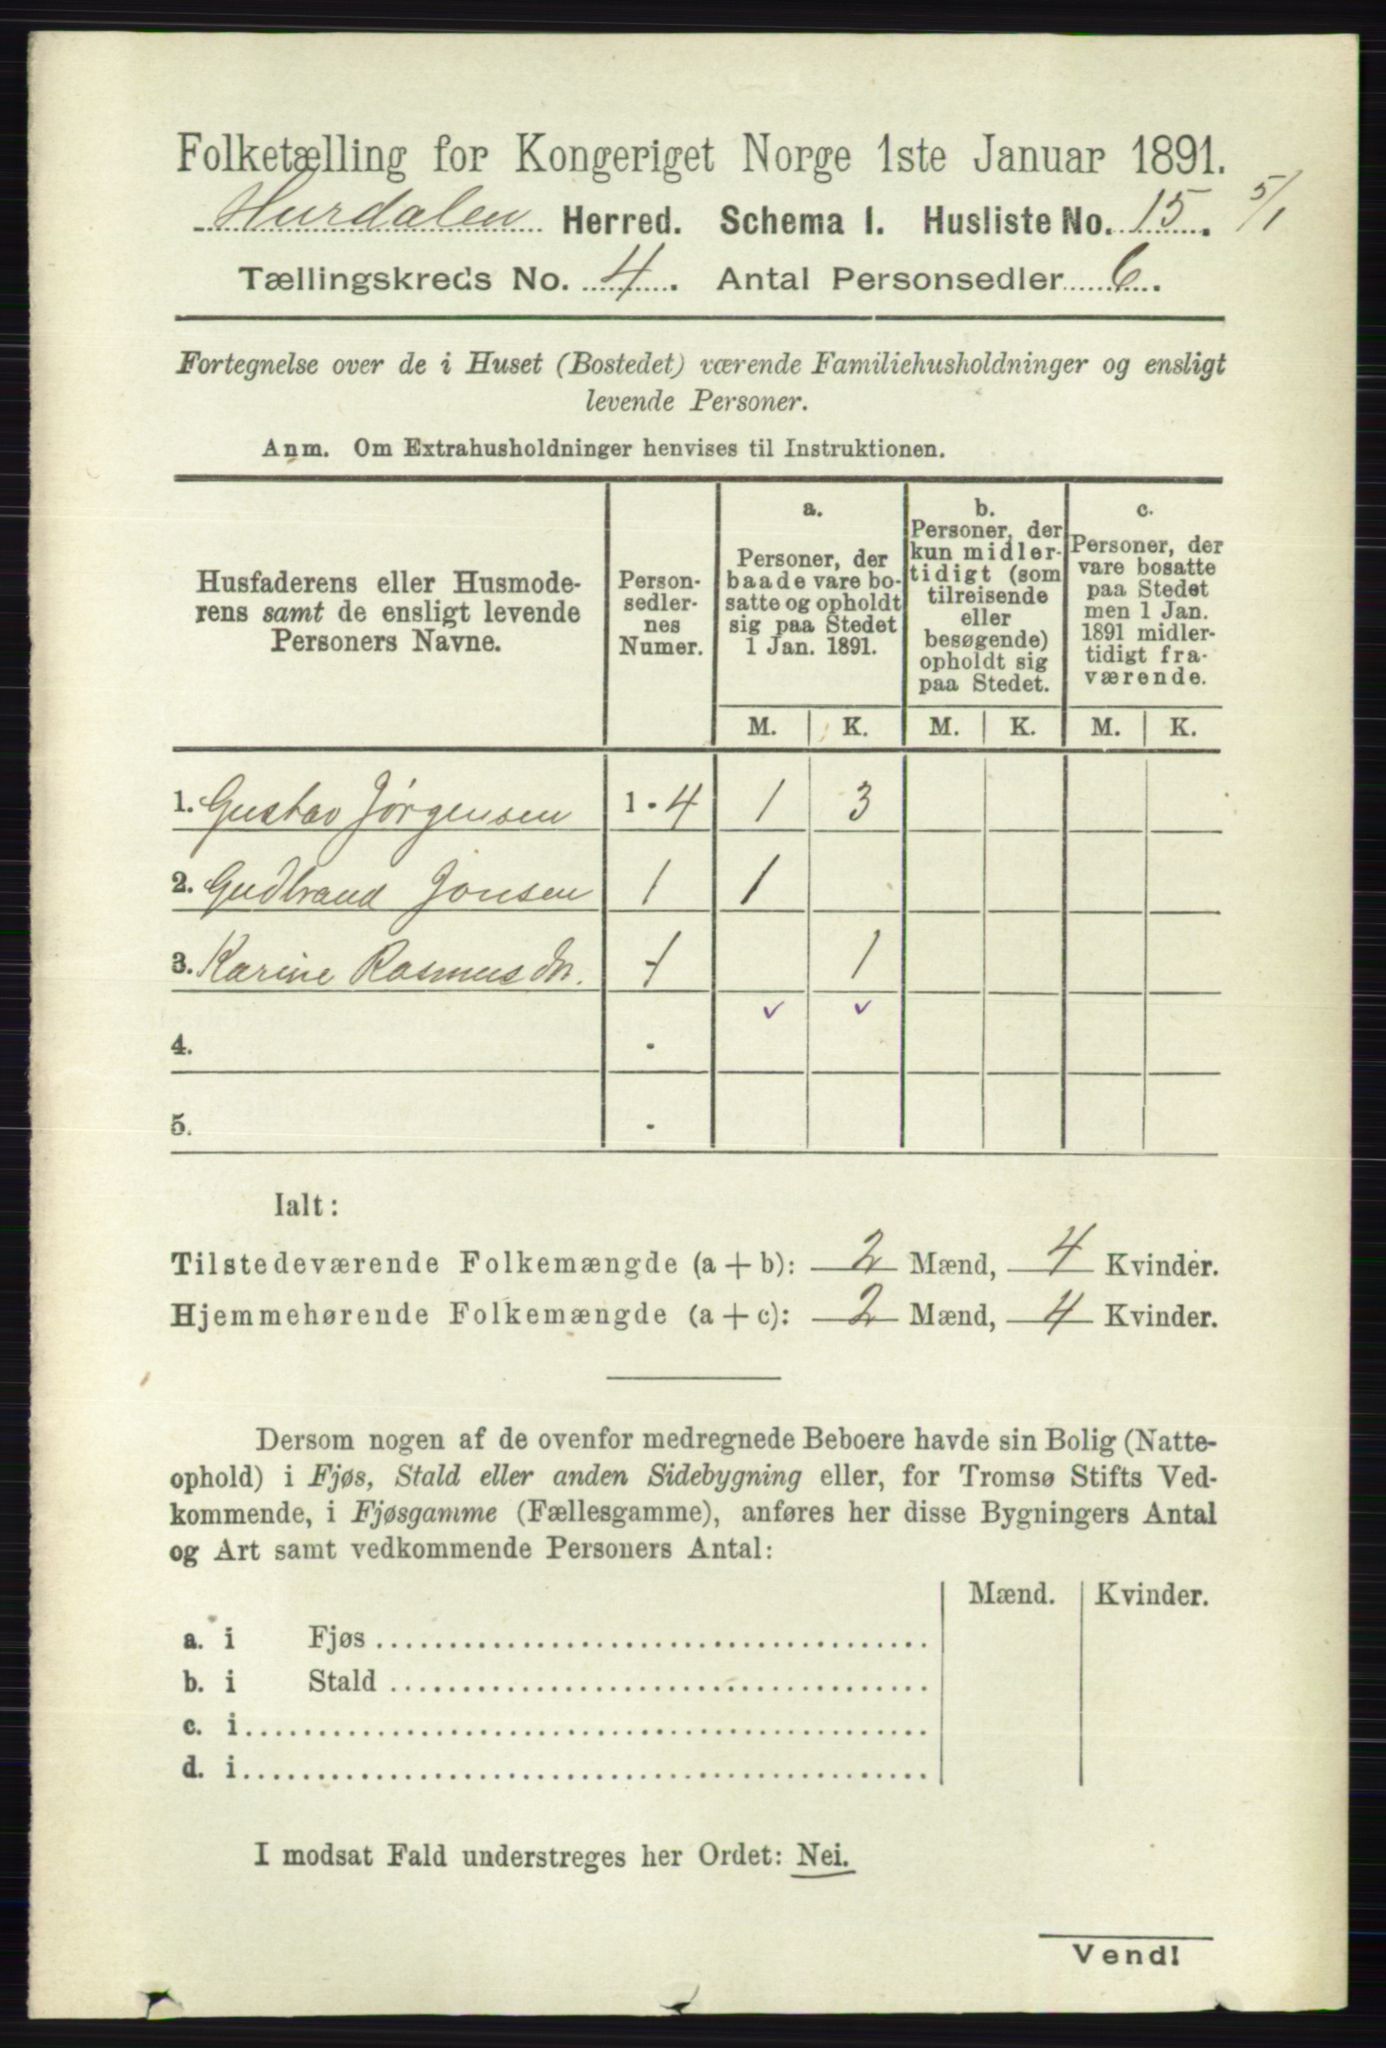 Folketælling for Kongeriget Norge 1ste Januar 1891.
Hurdalen Herred. Schema I. Husliste No. 15. 5/1
Tællingskreds No. 4. Antal Personsedler 6.
Fortegnelse over de i Huset (Bostedet) værende Familiehusholdninger og ensligt
levende Personer.
Anm. Om Extrahusholdninger henvises til Instruktionen.
Husfaderens eller Husmode-
rens samt de ensligt levende
Personers Navne.
Person-
sedler-
nes
Numer.
a.
Personer, der
baade vare bo-
satte og opholdt
sig paa Stedet
1 Jan. 1891.
b.
Personer, der
kun midler-
tidigt (som
tilreisende
eller
besøgende)
opholdt sig
paa Stedet.
c.
Personer, der
vare bosatte
paa Stedet
men 1 Jan.
1891 midler-
tidigt fra-
værende.
M. K. M. K. M. K.
1. Gustav Jørgensen 1 - 4 1 3
2. Gudbrand Jonsen 1 1
3. Karine Rasmusdn. 1 1
4. -
5. -
Ialt:
Tilstedeværende Folkemængde (a + b): 2 Mænd, 4 Kvinder.
Hjemmehørende Folkemængde (a + c): 2 Mænd, 4 Kvinder.
Dersom nogen af de ovenfor medregnede Beboere havde sin Bolig (Natte-
ophold) i Fjøs, Stald eller anden Sidebygning eller, for Tromsø Stifts Ved-
kommende, i Fjøsgamme (Fællesgamme), anføres her disse Bygningers Antal
og Art samt vedkommende Personers Antal:
Mænd. Kvinder.
a. i Fjøs
b. i Stald
c. i
d. i
I modsat Fald understreges her Ordet: Nei.
Vend!